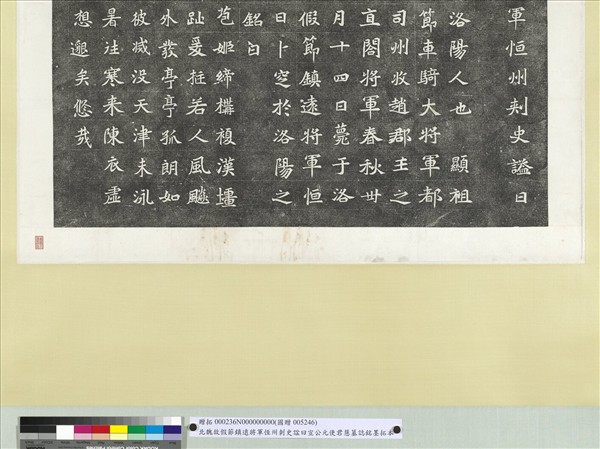 軍恒州刺史謚曰
洛陽人也 顯祖
節車騎大將軍都
司州牧趙郡王之
直閤將軍春秋卅
月十四日薨于洛
假節鎮遠將軍恒
日卜窆於洛陽之
銘曰
苞姬締構複漢壃
趾爰挺若人風飈
外發亭亭孤朗如
彼減沒天津未泳
暑往寒来陳衣虛
想邈矣悠哉
贈拓 000236N000000000(國贈 005246)
北魏故假節鎮遠將軍恆州刺史謚曰宣公元使君慧墓誌銘墨拓本